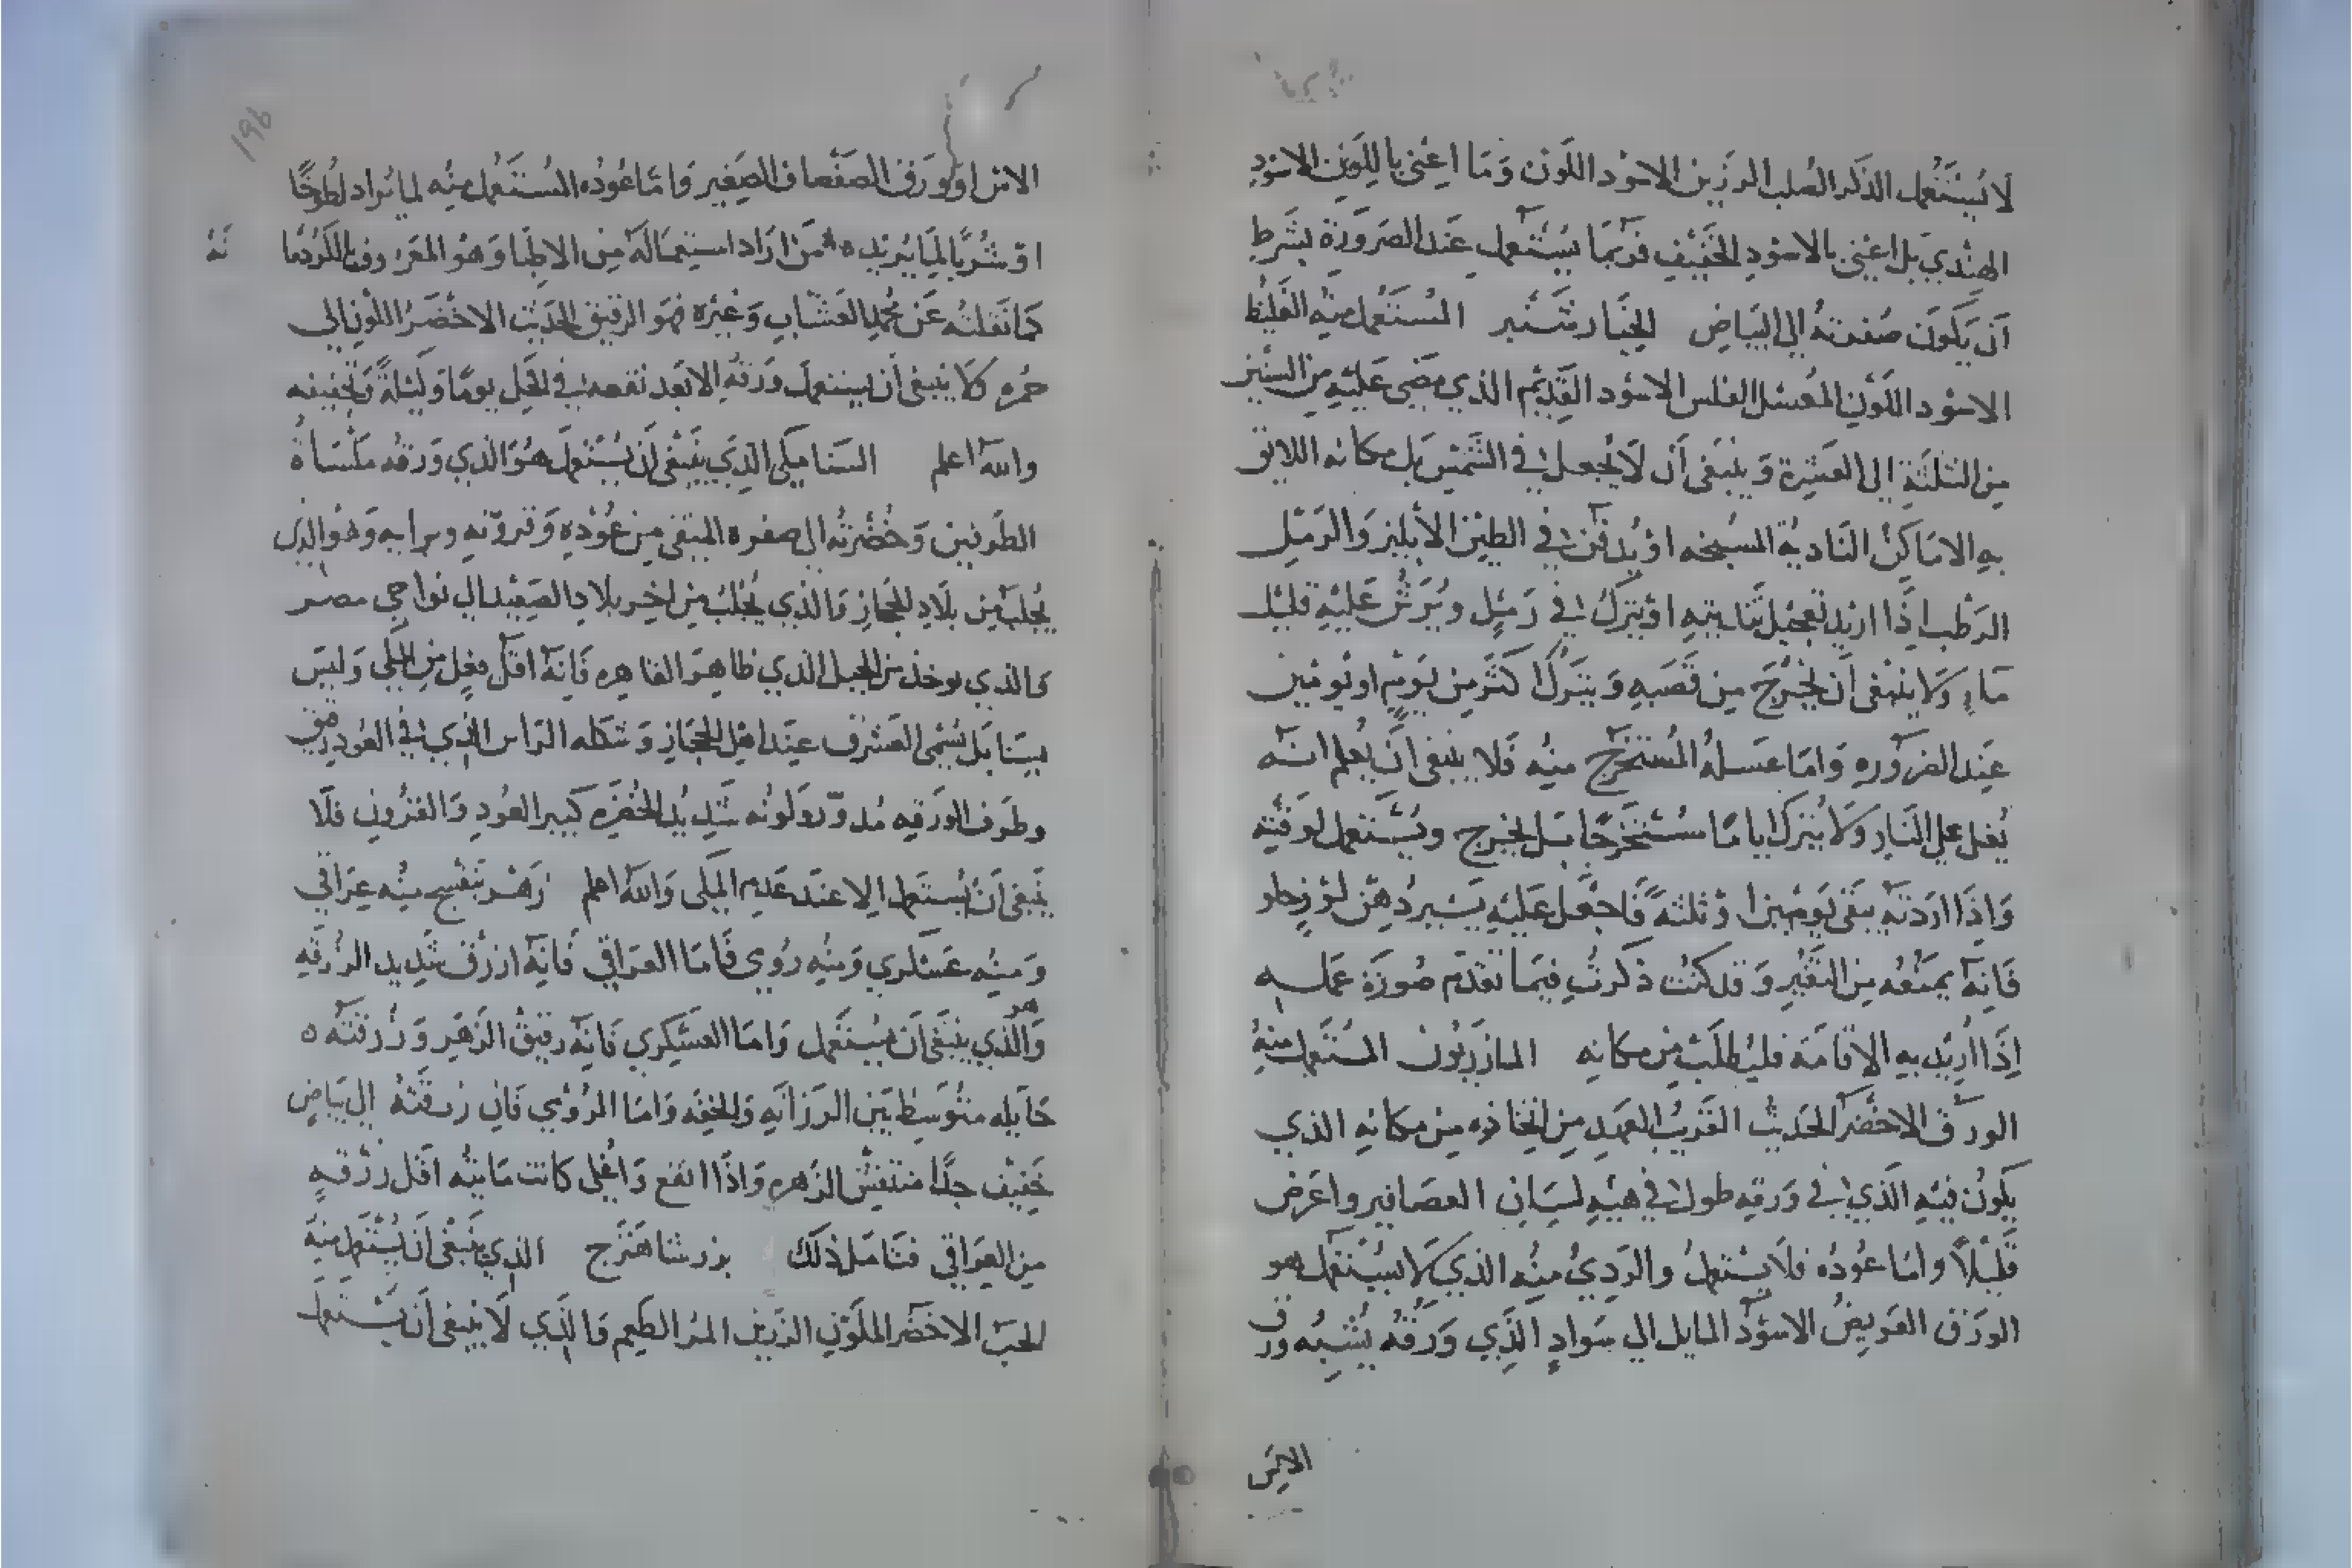 لا يستعمل الذكر الصلب الرزين الاسود اللون وما اعني باللون الاسود
الهندي بل اعني بالاسود الخفيف فربما يستعمل عند الضرورة بشرط
أن يكون صفرته إلى البياض الخيار شنبر المستعمل منه الغليظ
الاسود اللون المعسل الفلس الاسود القديم الذي مضى عليه من السنين
من الثلثة إلى العشرة وينبغي أن لا يجعل في الشمس بل مكانه اللائق
به الاماكن النادية السبخه او يدفن في الطين الأبليز والرمل
الرطب اذا اريد تعجيل او يترك في رمل ويرش عليه قليل
ماء ولا ينبغي أن يخرج من قصبه ويترك اكثر من يوم او يومين
عند الضروره واما عسله المستخرج منه فلا ينبغي أن انه
يغلى على النار ولا يترك اياما مستخرجا بل يخرج ويستعمل لوقته
واذا اردته يبقى يومين او ثلثة فاجعل عليه يسير دهن لوز حلو
فانه يمنعه من التغير وقد كنت ذكرت فيما تقدم صورة عمله
إذا اريد به الاقامة فليطلب من مكانه المازريون المستعمل منه
الورق الاخضر الحديث القريب العهد من اتخاذه من مكانه الذي
يكون فيه الذي في ورقه طول في هيئه لسان العصافير واعرض
قليلا واما عوده فلا يستعمل والردي منه الذي لا يستعمل هو
الورق العريض الاسود المايل الى سواد الذي ورقه يشبه ورق
الاس
196
الاس او ورق الصفصاف الصغير واما عوده المستعمل منه لما يراد لطوخا
او شربا لما يريده من اراد استعماله من الاطبا وهو المعروف
كما نقلته عن محمد العشاب وغيره فهو الرقيق الحديث الاخضر اللون الى
حمره ولا ينبغي أن يستعمل ورقه الا بعد نقعه في الخل يوما وليلة وتجفيفه
والله اعلم السنا مكى الذي ينبغي أن يستعمل هو الذي ورقه
الطرفين وخضرته الى صفره المنقى من عوده وقرونه وترابه وهو الذي
يجلب من بلاد الحجاز والذي يجلب من اخر بلاد الصعيد الى نواحي مصر
كالذي يوخذ من الجبل الذي ظاهر القاهره فانه اقل فعل من المكى وليس
بسنا بل يسمى العشرق عند اهل الحجاز وشكله الراس الذي في العود رقيق
وطرف الورقه مدور ولونه شديد الخضره كبير العود والقرون فلا
ينبغي أن يستعمل إلا عند عدم المكى والله اعلم زهر بنفسج منه عراقي
ومنه عسكري ومنه رومي فاما العراقي فانه ازرق شديد الزرقه
وهو الذي ينبغي أن يستعمل واما العسكري فانه رقيق الزهر وزرقته
حايله متوسط بين الرزانه والخفه واما الرومي فان زرقته الى بياض
خفيف جدا منتفش الزهره واذا انقع واغلى كانت مايته اقل زرقه
من العراقي فتامل ذلك بزر شاهترج الذي ينبغي أن يستعمل منه
الحب الاخضر الملون الرزين المر الطعم والذي لا ينبغي أن يستعمل